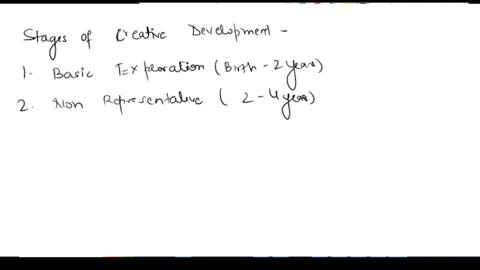 Stages of Creative Development -
1. Basic Exploration (Birth - 2 years)
2. Non Representative ( 2 - 4 years)